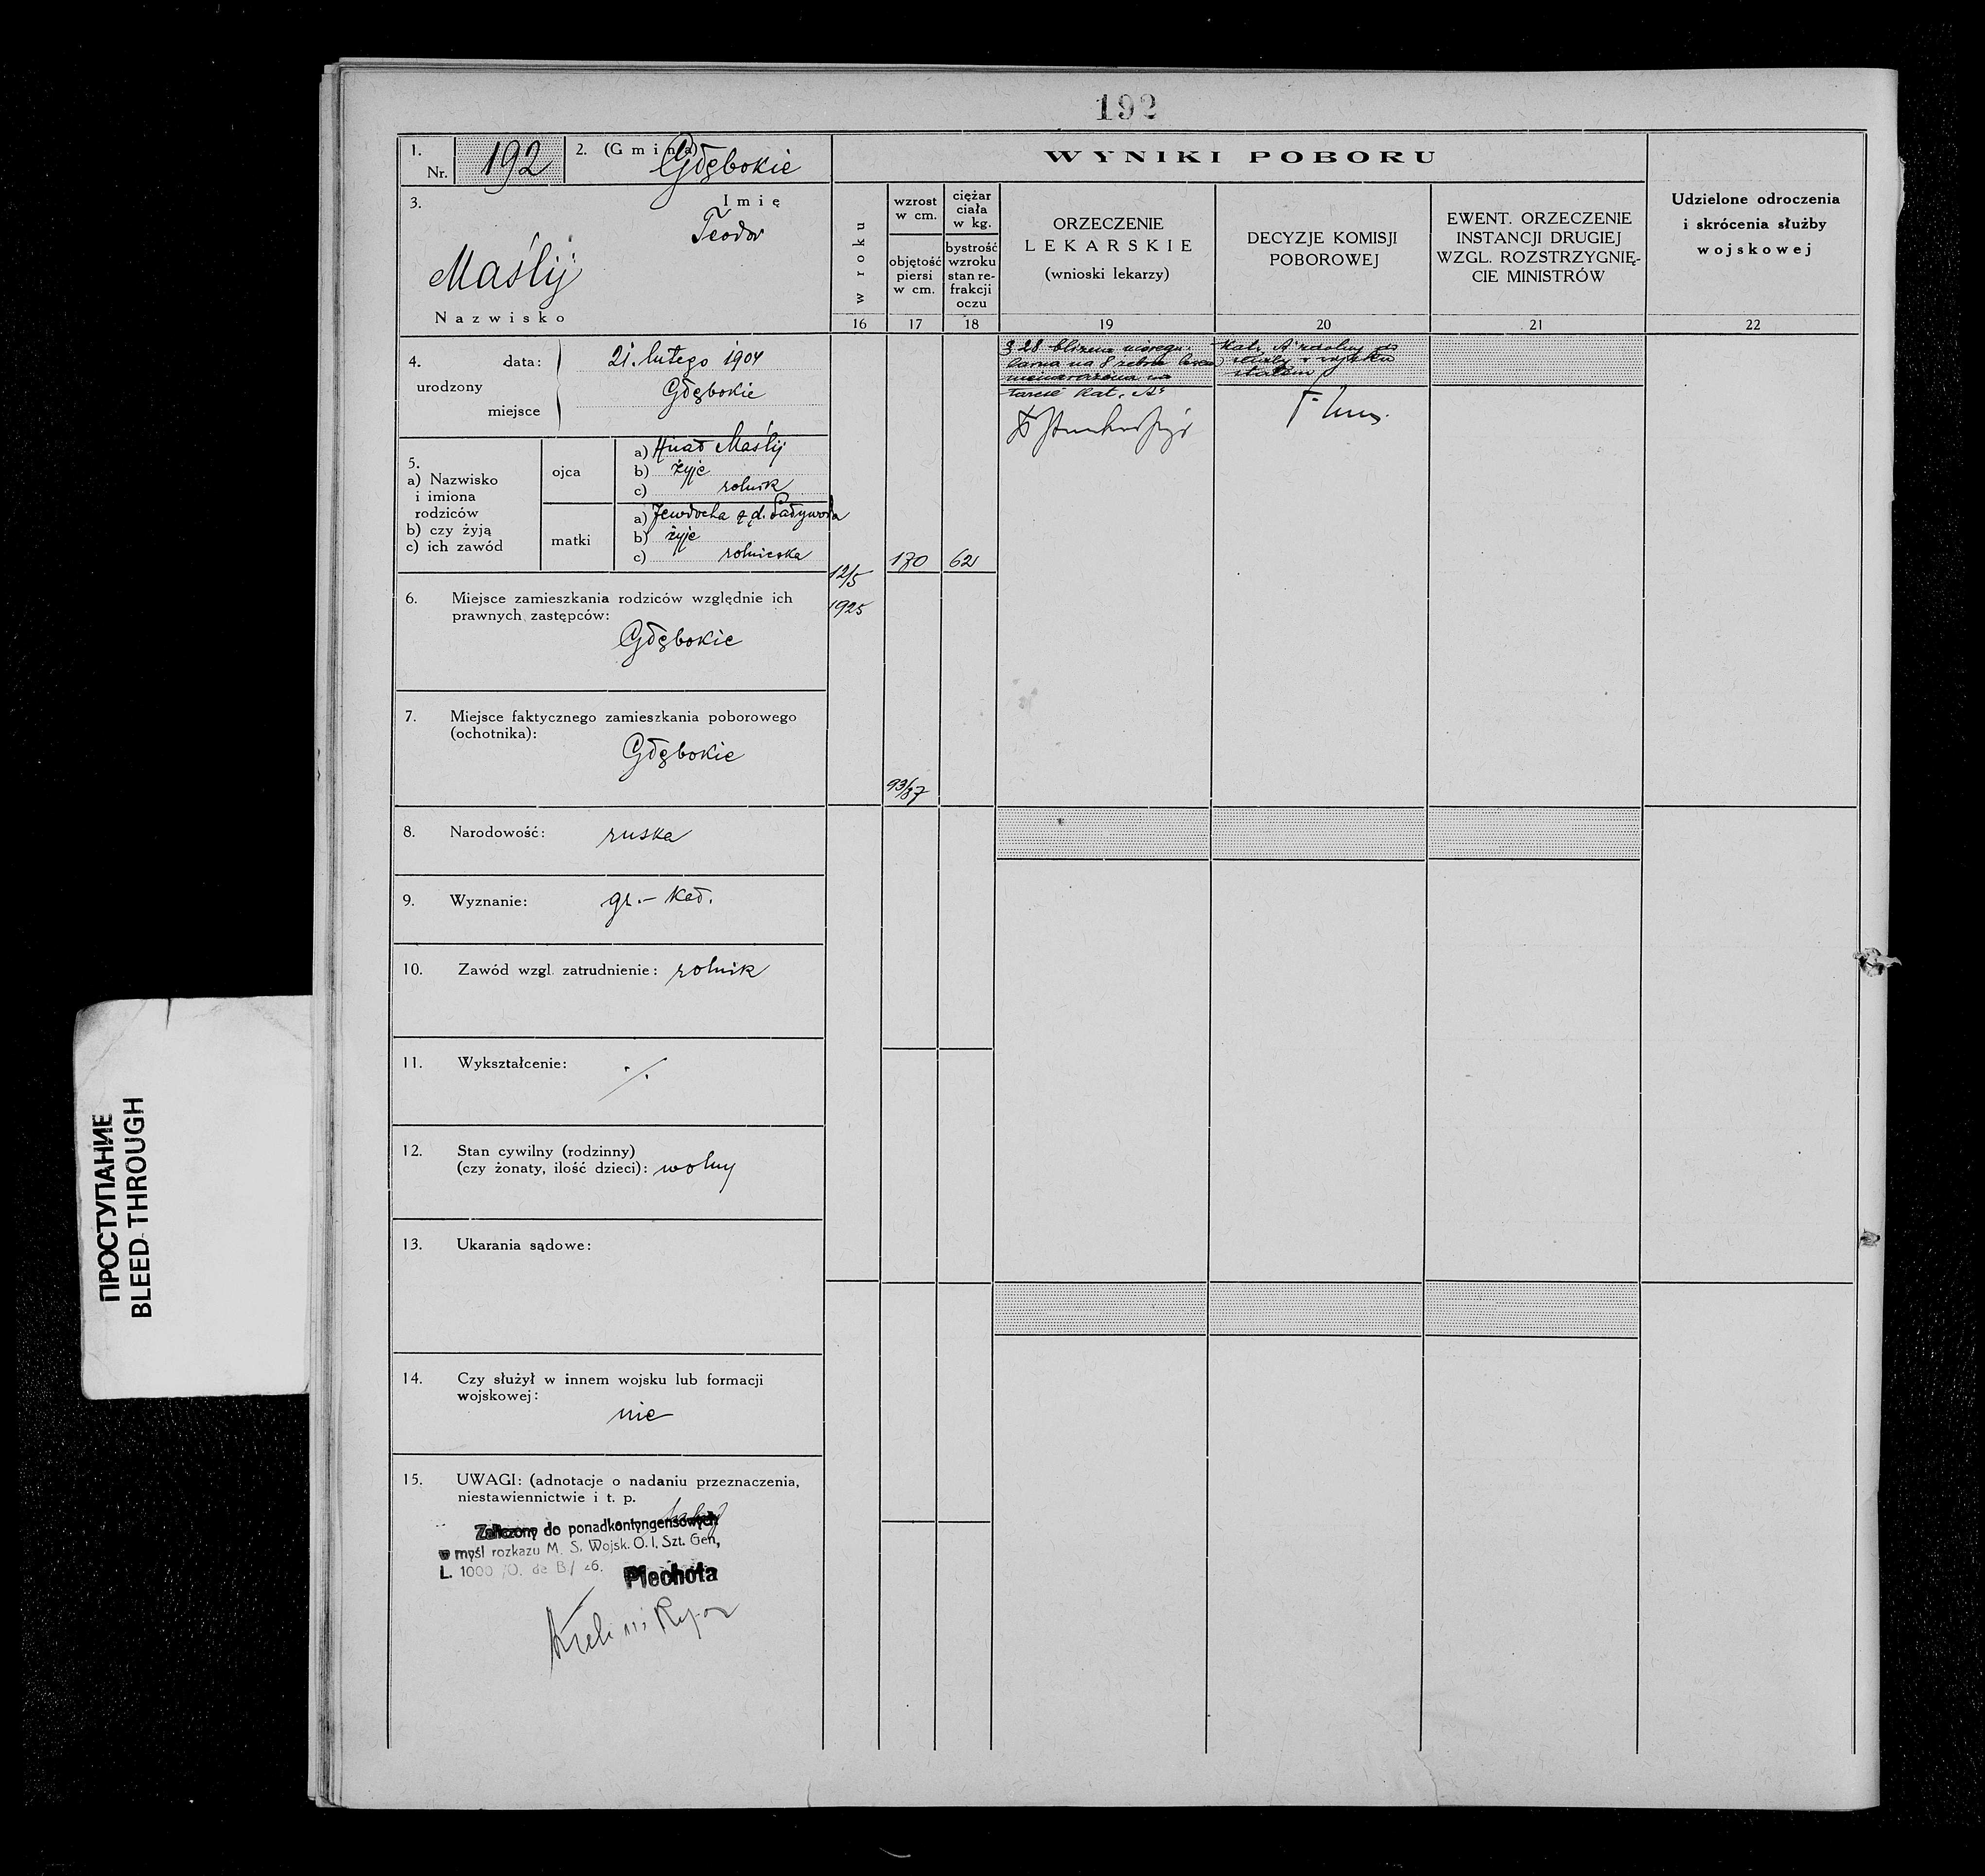 192
1.
Nr. 192
2. (Gmina) Głębokie
3.
Imię
Teodor
Maślij
Nazwisko
4.
urodzony
data: 21. lutego 1904
miejsce Głębokie
5.
a) Nazwisko
i imiona
rodziców
b) czy żyją
c) ich zawód
ojca
a) Hnat Maślij
b) żyje
c) rolnik
matki
a) Jewdocha z d.
b) żyje
c) rolniczka
6. Miejsce zamieszkania rodziców względnie ich
prawnych zastępców:
Głębokie
7. Miejsce faktycznego zamieszkania poborowego
(ochotnika):
Głębokie
8. Narodowość: ruska
9. Wyznanie: gr.-kat.
10. Zawód wzgl. zatrudnienie: rolnik
11. Wykształcenie: ./.
12. Stan cywilny (rodzinny)
(czy żonaty, ilość dzieci): wolny
13. Ukarania sądowe:
14. Czy służył w innem wojsku lub formacji
wojskowej:
nie
15. UWAGI: (adnotacje o nadaniu przeznaczenia,
niestawiennictwie i t. p.
Zaliczony do ponadkontyngensowych
w myśl rozkazu M. S. Wojsk. O. I. Szt. Gen,
L. 1000 /O. de B/ 26.
Piechota
WYNIKI POBORU
w roku
16
wzrost
w cm.
objętość
piersi
w cm.
17
ciężar
ciała
w kg.
bystrość
wzroku
stan re-
frakcji
oczu
18
ORZECZENIE
LEKARSKIE
(wnioski lekarzy)
19
DECYZJE KOMISJI
POBOROWEJ
20
EWENT. ORZECZENIE
INSTANCJI DRUGIEJ
WZGL. ROZSTRZYGNIĘ-
CIE MINISTRÓW
21
Udzielone odroczenia
i skrócenia służby
wojskowej
22
12/5
1925
170
62
93/87
§ 28 blizna
na 8
Kat. A
Kat. A zdolny do
służby w wojsku
stałem
ПРОСТУПАНИЕ
BLEED-THROUGH